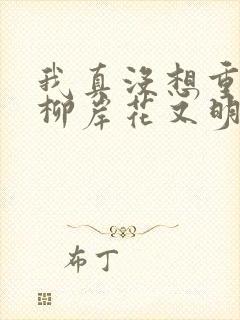 我真没想重
柳岸花又明
布丁